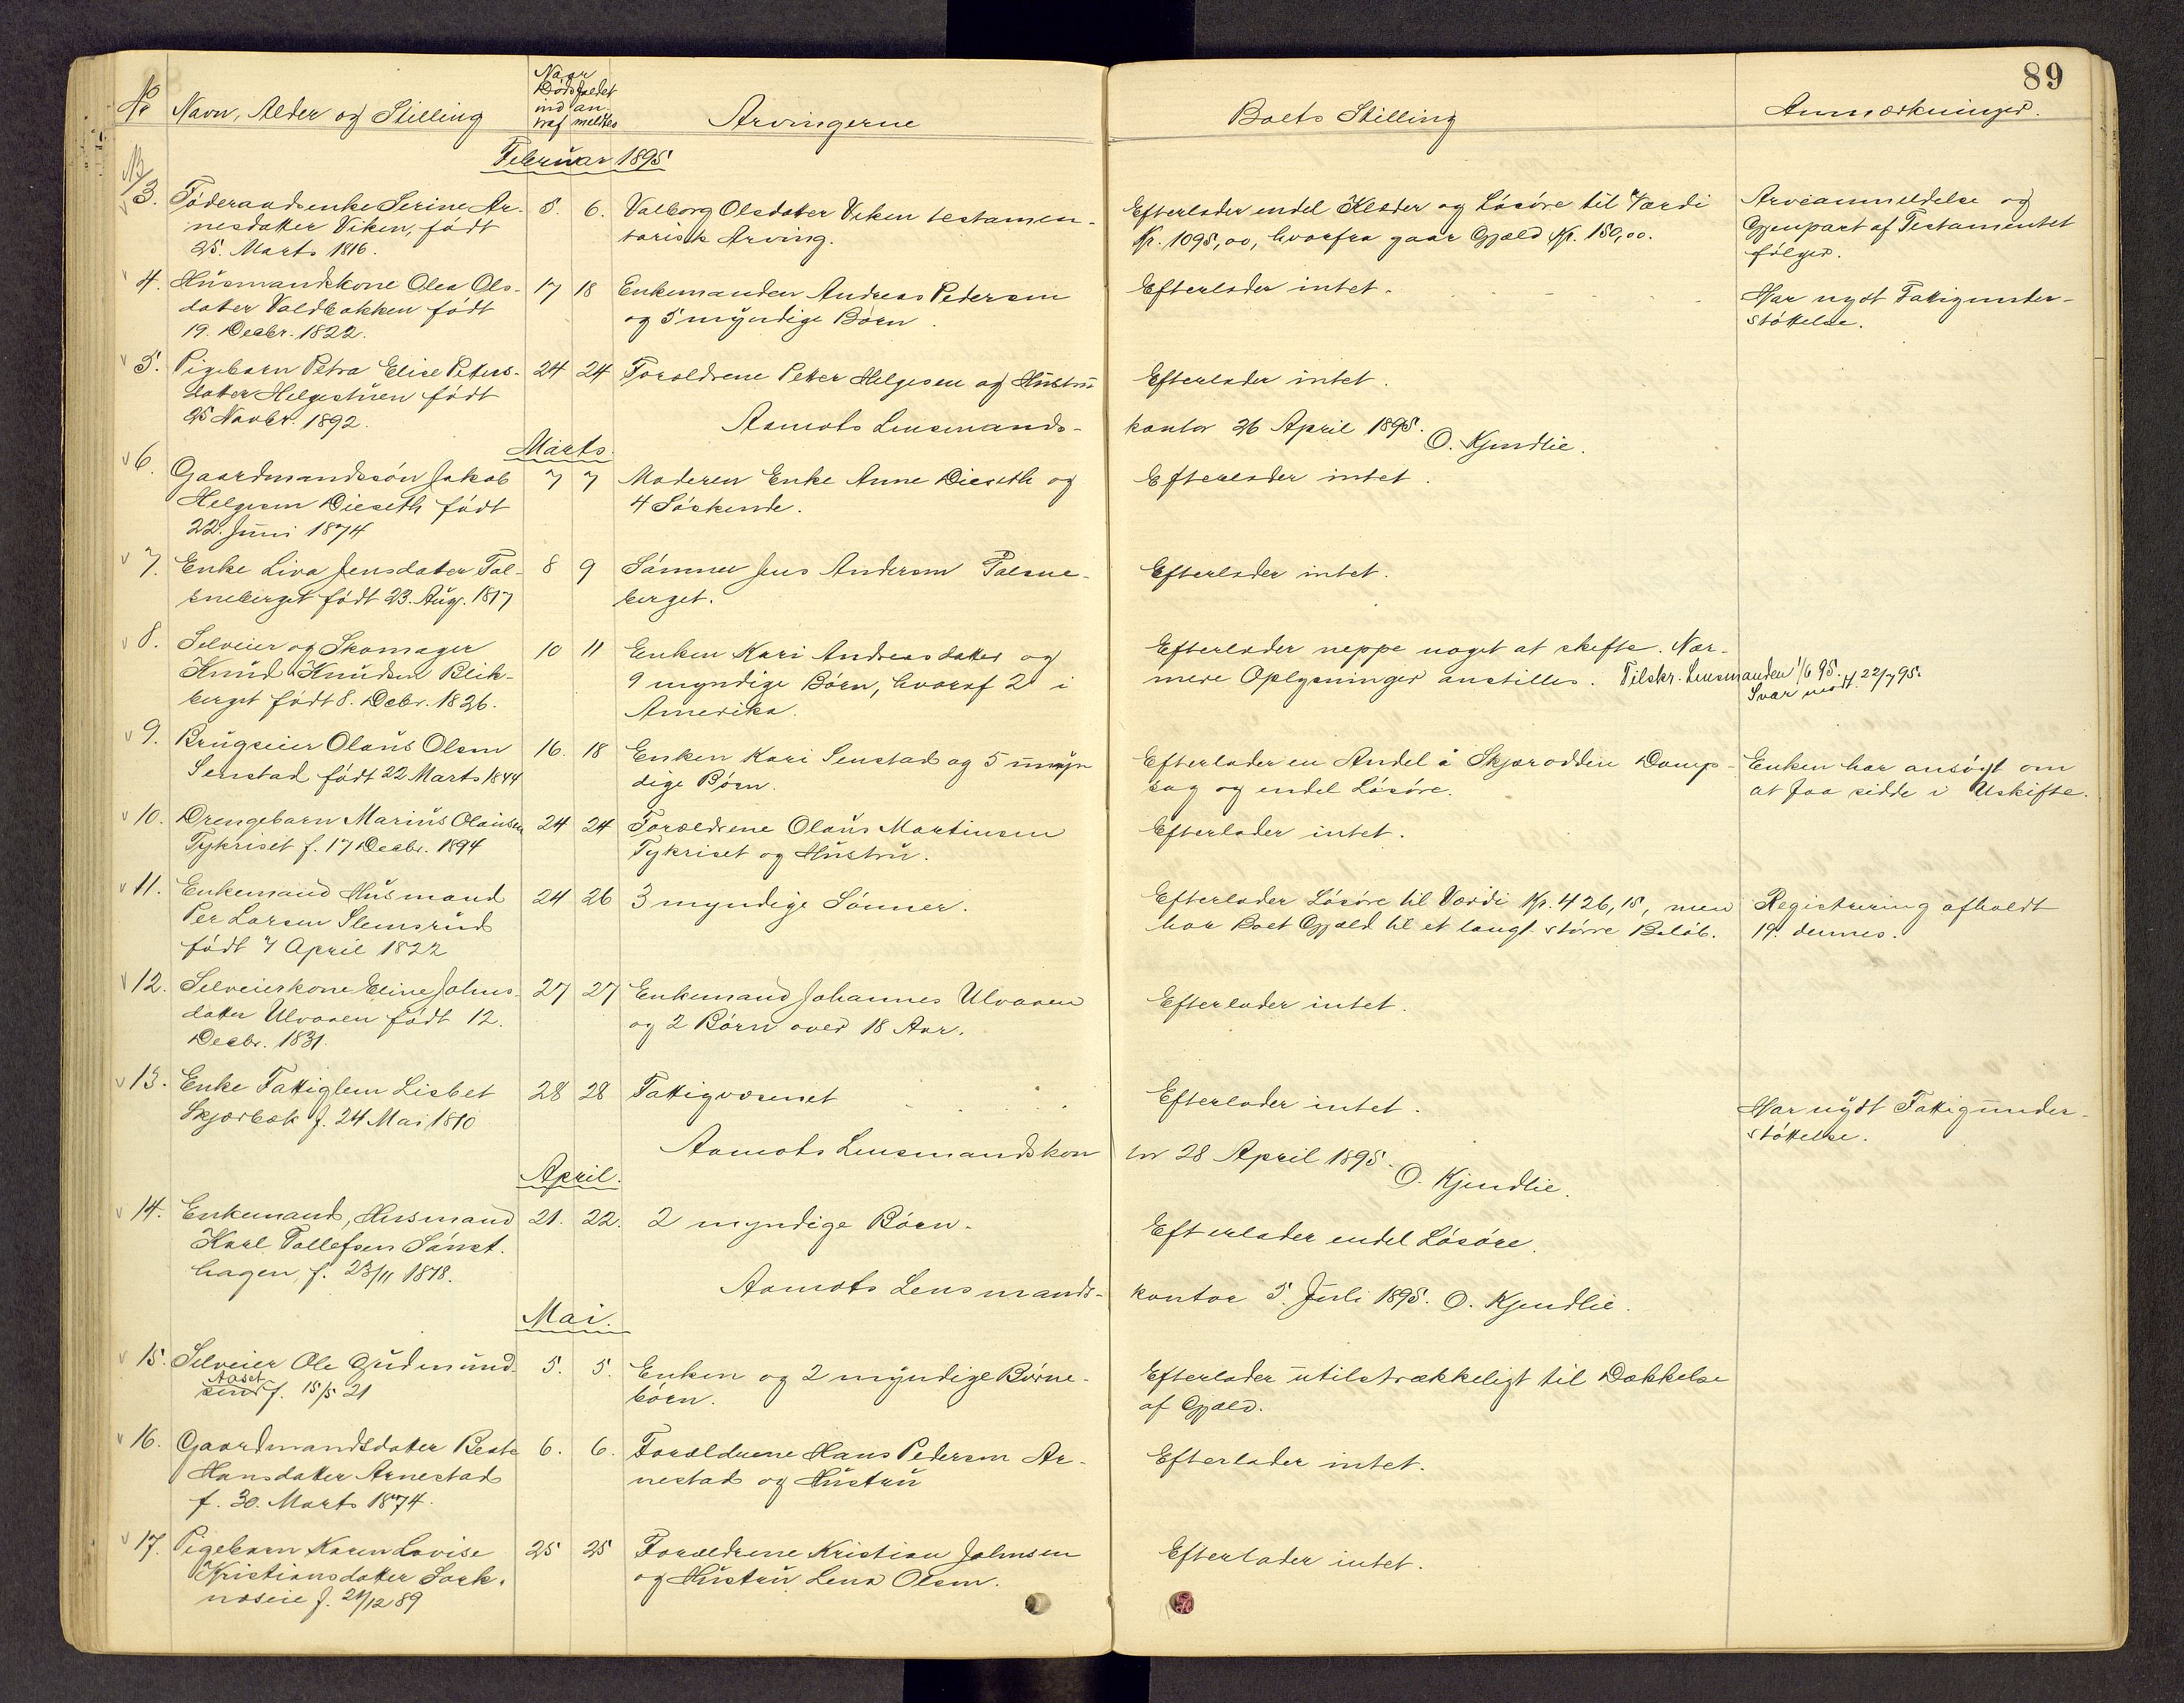 89
No Navn, Alder og Stilling
Naar Dødsfaldet
ind- an-
traf meldtes
Arvingerne
Boets Stilling
Anmærkninger.
Februar 1895
3. Føderaadsenke Serine Ar- 5. 6. Valborg Olsdatter Viken testamen- Efterlader endel Klæder og Løsøre til Værdi Arveanmeldelse og
nesdatter Viken, født tarisk Arving. Kr. 1095,00, hvorfra gaar Gjæld Kr. 150,00. Gjenpart af Testamentet
25. Marts 1816. følger.
4. Husmandskone Olea Ols- 17 18 Enkemanden Andreas Pedersen Efterlader intet. Har nydt Fattigunder-
datter Voldbakken født og 5 myndige Børn. støttelse.
19. Decbr. 1822.
5. Pigebarn Petra Elise Peters- 24 24 Forældrene Peter Helgesen og Hustru Efterlader intet.
datter Helgestuen født
25 Novbr. 1892. Aamots Lensmands- kontor 26 April 1895. O. Kjendlie.
Marts.
6. Gaardmandssøn Jakob 7 7 Moderen Enke Anne Dieseth og Efterlader intet.
Helgesen Dieseth født 4 Søskende.
22. Juni 1874
7. Enke Liva Jensdatter Fal- 8 9 Sønnen Jens Andersen Falsne- Efterlader intet.
sneberget født 23. Aug. 1817 berget.
8. Selveier og Skomager 10 11 Enken Kari Andreasdatter og Efterlader neppe noget at skifte. Nær-
Knud Knudsen Blik- 9 myndige Børn, hvoraf 2 i mere Oplysninger anstilles. Tilskr. Lensmanden 1/6 95.
berget født 8. Debr. 1826. Amerika. Svar modt. 22/7 95.
9. Brugseier Olaus Olsen 16. 18 Enken Kari Senstad og 5 umyn Efterlader en Andel i Skjærodden Damp- Enken har ansøgt om
Senstad født 22 Marts 1844 dige Børn. sag og endel Løsøre. at faa sidde i Uskifte.
10. Drengebarn Marius Olausen 24 24 Forældrene Olaus Martinsen Efterlader intet.
Tykriset f. 17 Decbr. 1894 Tykriset og Hustru.
11. Enkemand Husmand 24 26 3 myndige Sønner. Efterlader Løsøre til Værdi Kr. 426,15, men Registrering afholdt
Per Larsen Slemsrud har Boet Gjæld til et langt større Beløb. 19. dennes.
født 7 April 1822
12. Selveierkone Eline Johns- 27 27 Enkemand Johannes Ulvaaen Efterlader intet.
datter Ulvaaen født 12. og 2 Børn over 18 Aar.
Decbr. 1831.
13. Enke Fattiglem Lisbet 28 28 Fattigvæsenet Efterlader intet. Har nydt Fattigunder-
Skjærbæk f. 24 Mai 1810 støttelse.
Aamots Lensmandskon tor 28 April 1895. O. Kjendlie.
April.
14. Enkemand, Husmand 21. 22. 2 myndige Børn. Efterlader endel Løsøre.
Karl Tollefsen Sønst.
hagen, f. 23/11 1818. Aamots Lensmands- kontor 5. Juli 1895. O. Kjendlie.
Mai.
15. Selveier Ole Gudmund- 5. 5. Enken og 2 myndige Børne- Efterlader utilstrækkeligt til Dækkelse
Aaset
send f. 15/5 21 børn. af Gjæld.
16. Gaardmandsdatter Beate 6. 6. Forældrene Hans Pedersen Ar- Efterlader intet.
Hansdatter Arnestad nestad og Hustru
f. 30. Marts 1874.
17. Pigebarn Karen Lovise 25 25 Forældrene Kristian Johnsen Efterlader intet.
Kristiansdatter Sork- og Hustru Lena Olsen.
næseie f. 21/12 89